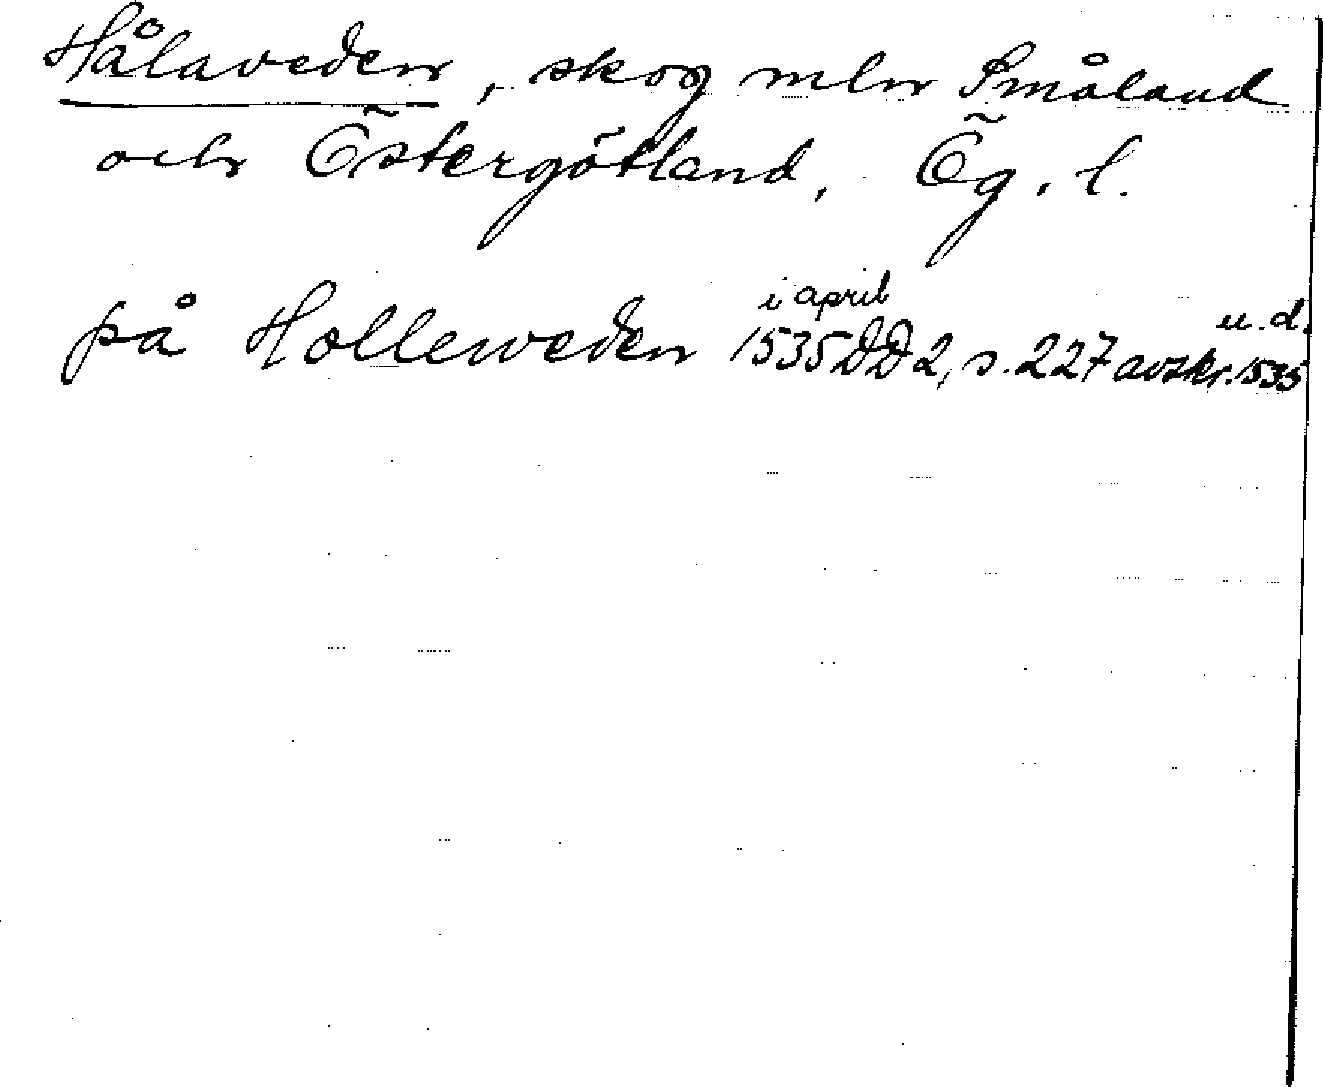 Hålaveden, skog mln Småland
och Östergötland, Ög. l.
på Holleweden i april 1535 DD 2, s. 227 avskr. 1535 u.d.